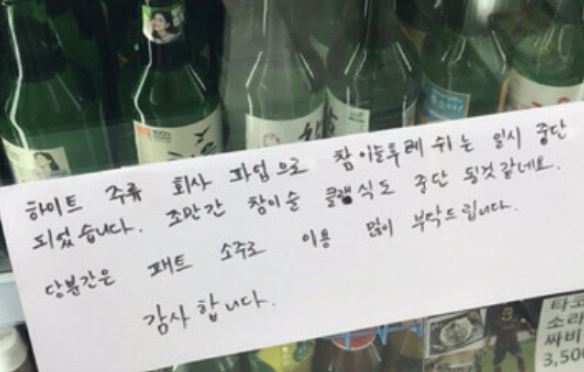 하이트 주류 회사 파업으로 참이슬후레쉬는 일시 중단
되었습니다. 조만간 참이슬 클래식도 중단 될것같네요.
당분간은 패트 소주로 이용 많이 부탁드립니다.
감사합니다.
타코
소라
싸비
3,500